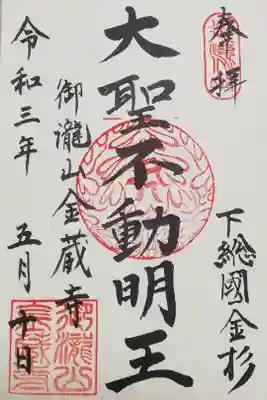 奉拝
下総國金杉
大聖不動明王
御瀧山金蔵寺
令和三年 五月十日
御瀧山金蔵寺